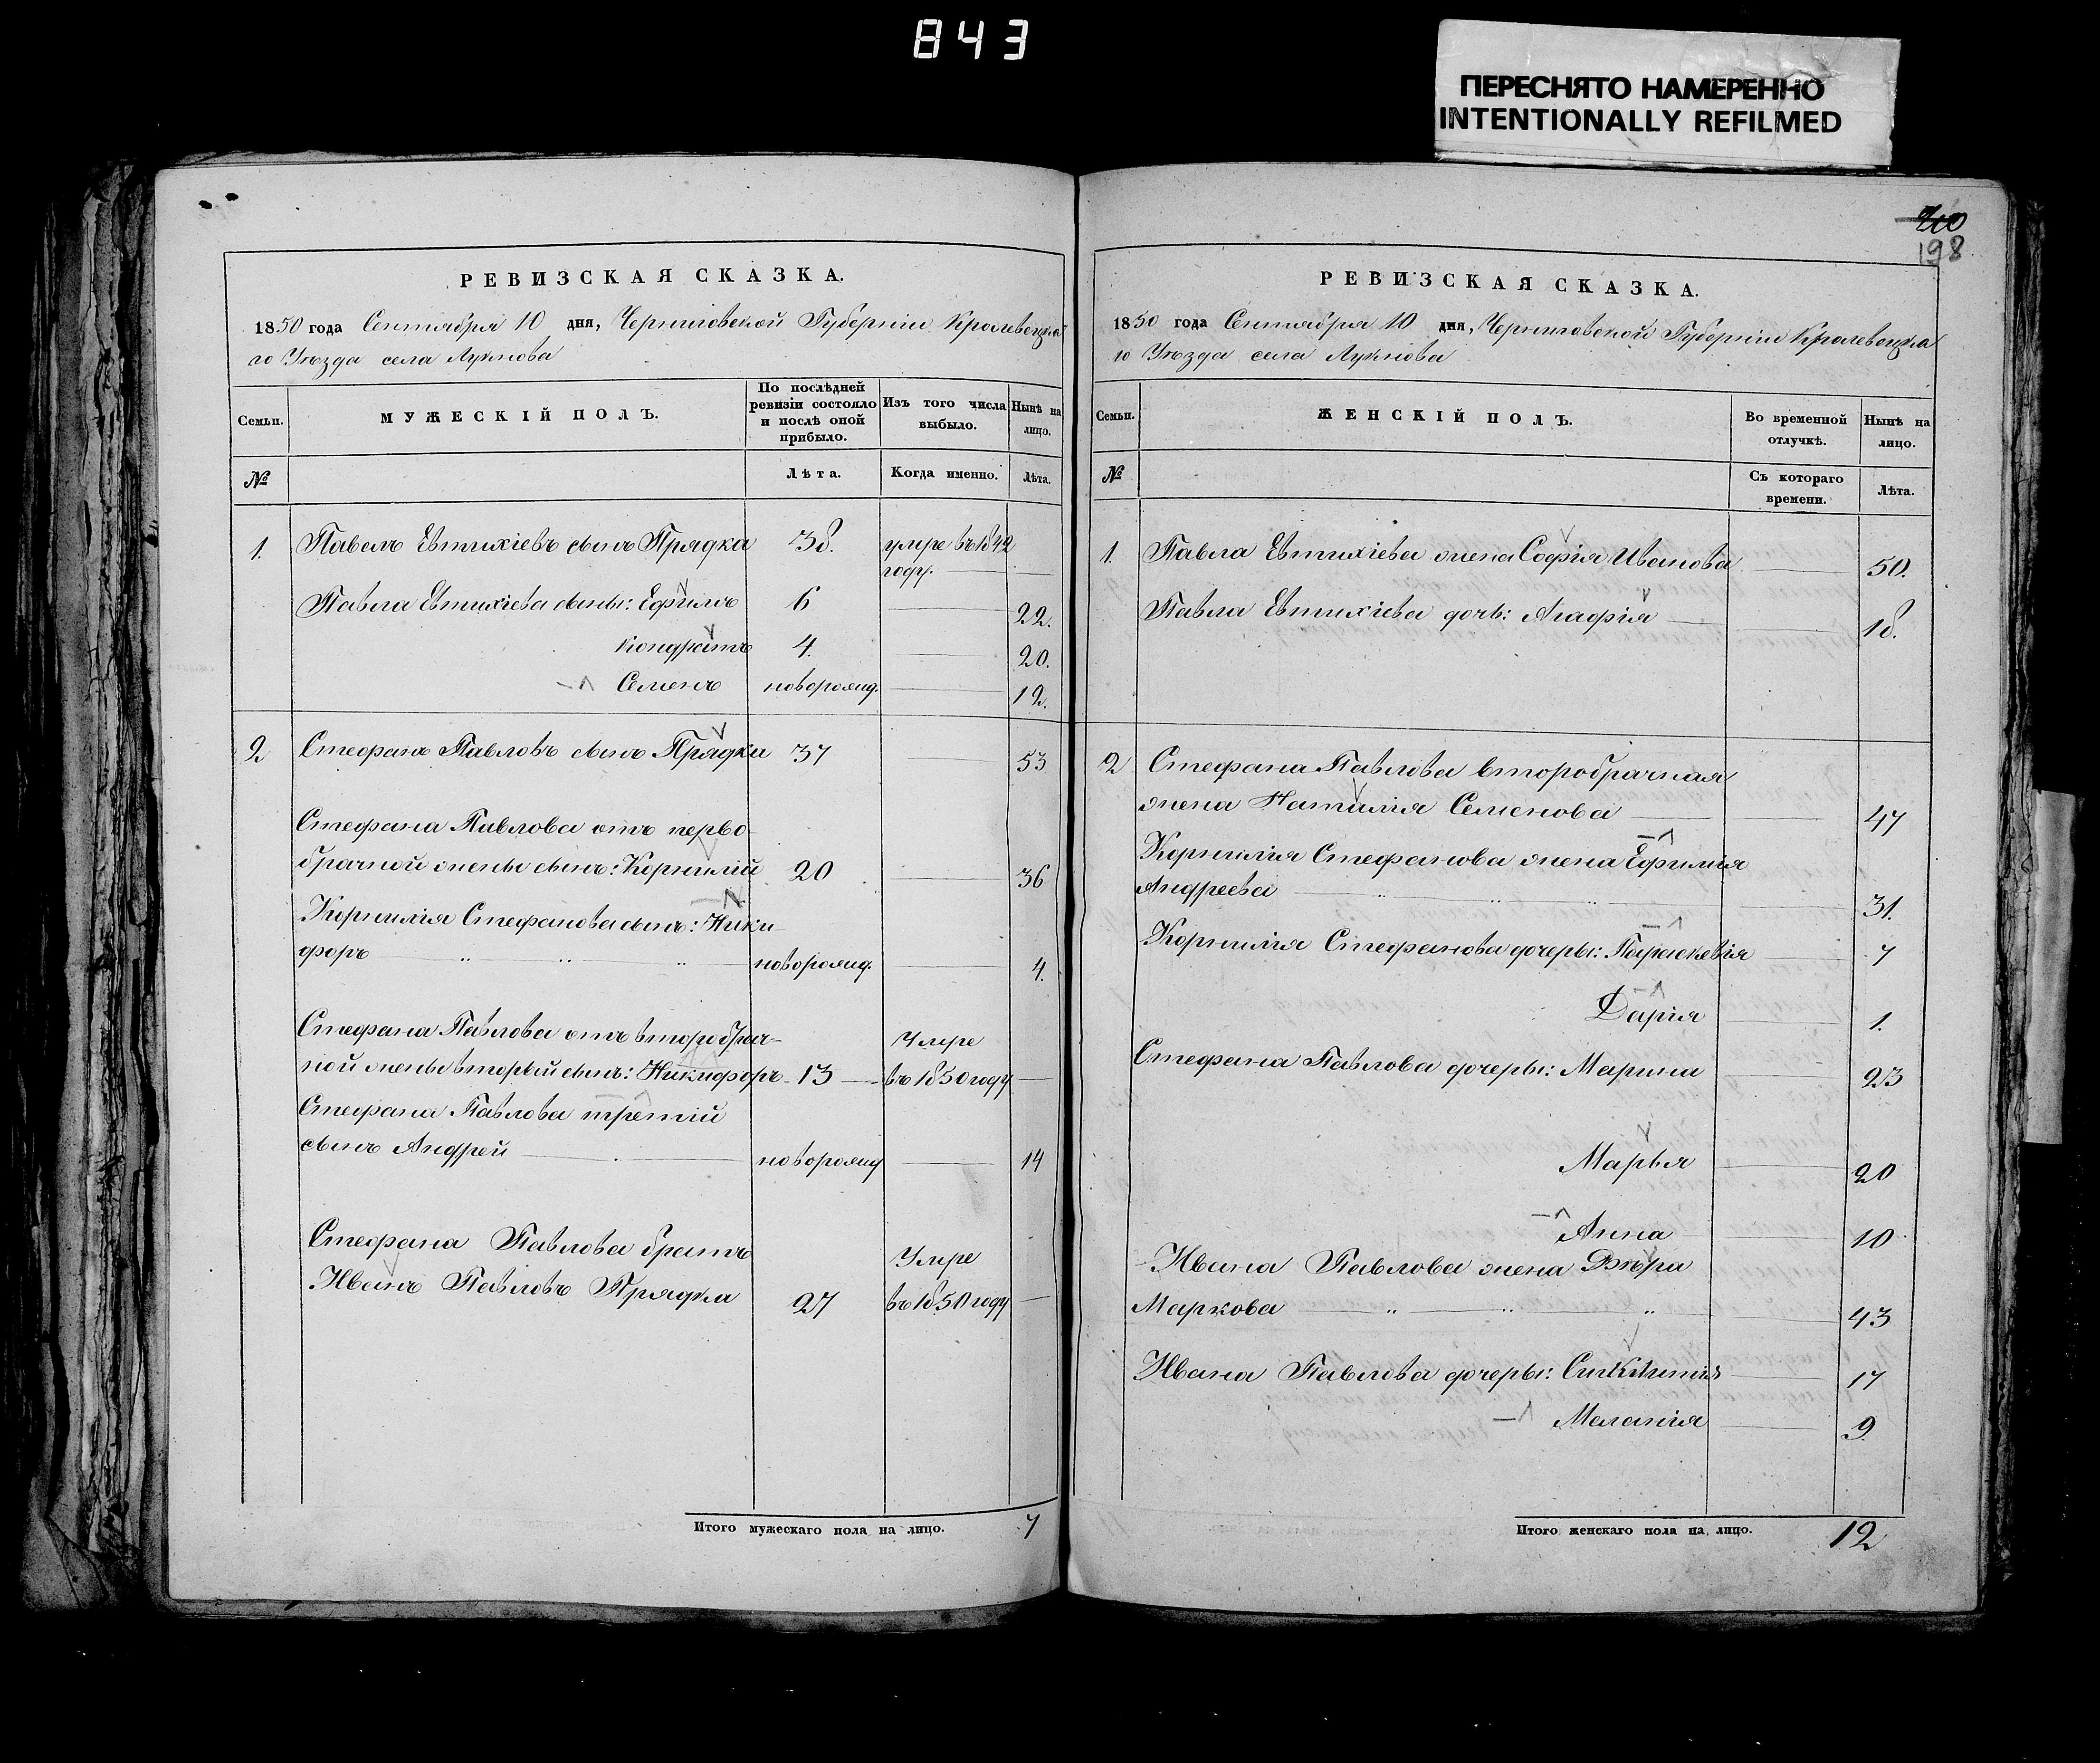 843
ПЕРЕСНЯТО НАМЕРЕННО
INTENTIONALLY REFILMED
210
198
РЕВИЗСКАЯ СКАЗКА.
1850 года Сентября 10 дня, Черниговской Губерніи Кролевецка
го Уѣзда села Лукнова
Семьи.
МУЖЕСКІЙ ПОЛЪ.
По послѣдней ревизіи состояло и послѣ оной прибыло.
Изъ того числа выбыло.
Нынѣ на лицо.
№
Лѣта.
Когда именно.
Лѣта.
1. Павелъ Евтихіевъ сынъ Прядка 38. умре въ 1842
году.
Павла Евтихіева сыны: Ефимъ 6 22.
Кондратъ 4. 20.
Семенъ новорожд. 12.
2 Стефанъ Павловъ сынъ Прядка 37 53
Стефана Павлова отъ перво
брачной жены сынъ: Корнилій 20 36
Корнилія Стефанова сынъ: Ники
форъ новорожд. 4.
Стефана Павлова отъ второбрач-
ной жены вторый сынъ: Никифоръ 13 Умре
въ 1850 году
Стефана Павлова третій
сынъ Андрей новорожд 14
Стефана Павлова братъ Умре
Иванъ Павловъ Прядка 27 въ 1850 году
Итого мужескаго пола на лицо. 7
РЕВИЗСКАЯ СКАЗКА.
1850 года Сентября 10 дня, Черниговской Губерніи Кролевецка
го Уѣзда села Лукнова
Семьи.
ЖЕНСКІЙ ПОЛЪ.
Во временной отлучкѣ.
Нынѣ на лицо.
№
Съ котораго времени.
Лѣта.
1. Павла Евтихіева жена Софія Иванова 50.
Павла Евтихіева дочь: Агафія 18.
2 Стефана Павлова второбрачная
жена Наталія Семенова 47
Корнилія Стефанова жена Ефимія
Андреева 31.
Корнилія Стефанова дочеры: Параскевія 7
Дарія 1.
Стефана Павлова дочеры: Марина 23
Марья 20
Анна 10
Ивана Павлова жена Вѣра
Маркова 43
Ивана Павлова дочеры: 17
Маланія 9.
Итого женскаго пола на лицо. 12